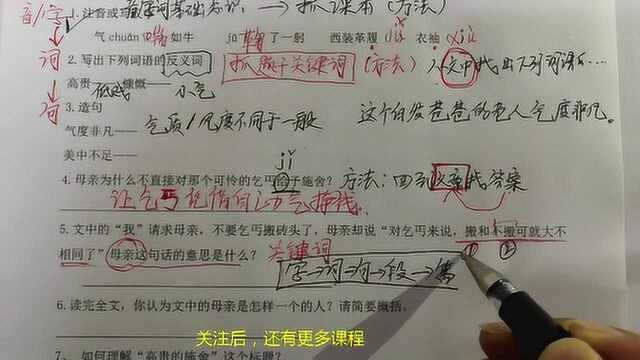 音/字 1.注音或写 字词基础知识 → 抓课本(方法)
气chuǎn喘如牛 jū鞠了一躬 西装革履 衣袖xiù
词 2.写出下列词语的反义词 抓题干关键词(方法) 文中找出下列词语
高贵——低贱 慷慨——小气
句 3.造句 这个白发苍苍的老人气度非凡。
气度非凡——气质/风度不同于一般
美中不足——
jǐ
4.母亲为什么不直接对那个可怜的乞丐给予施舍?方法:回到文章找答案
让乞丐凭借自己力气挣钱。
5.文中的“我”请求母亲,不要乞丐搬砖头了,母亲却说“对乞丐来说,搬和不搬可就大不
相同了”母亲这句话的意思是什么? 关键词 ① ②
字→词→句→段→篇
6.读完全文,你认为文中的母亲是怎样一个人?请简要概括。
关注后,还有更多课程
7、如何理解“高贵的施舍”这个标题?